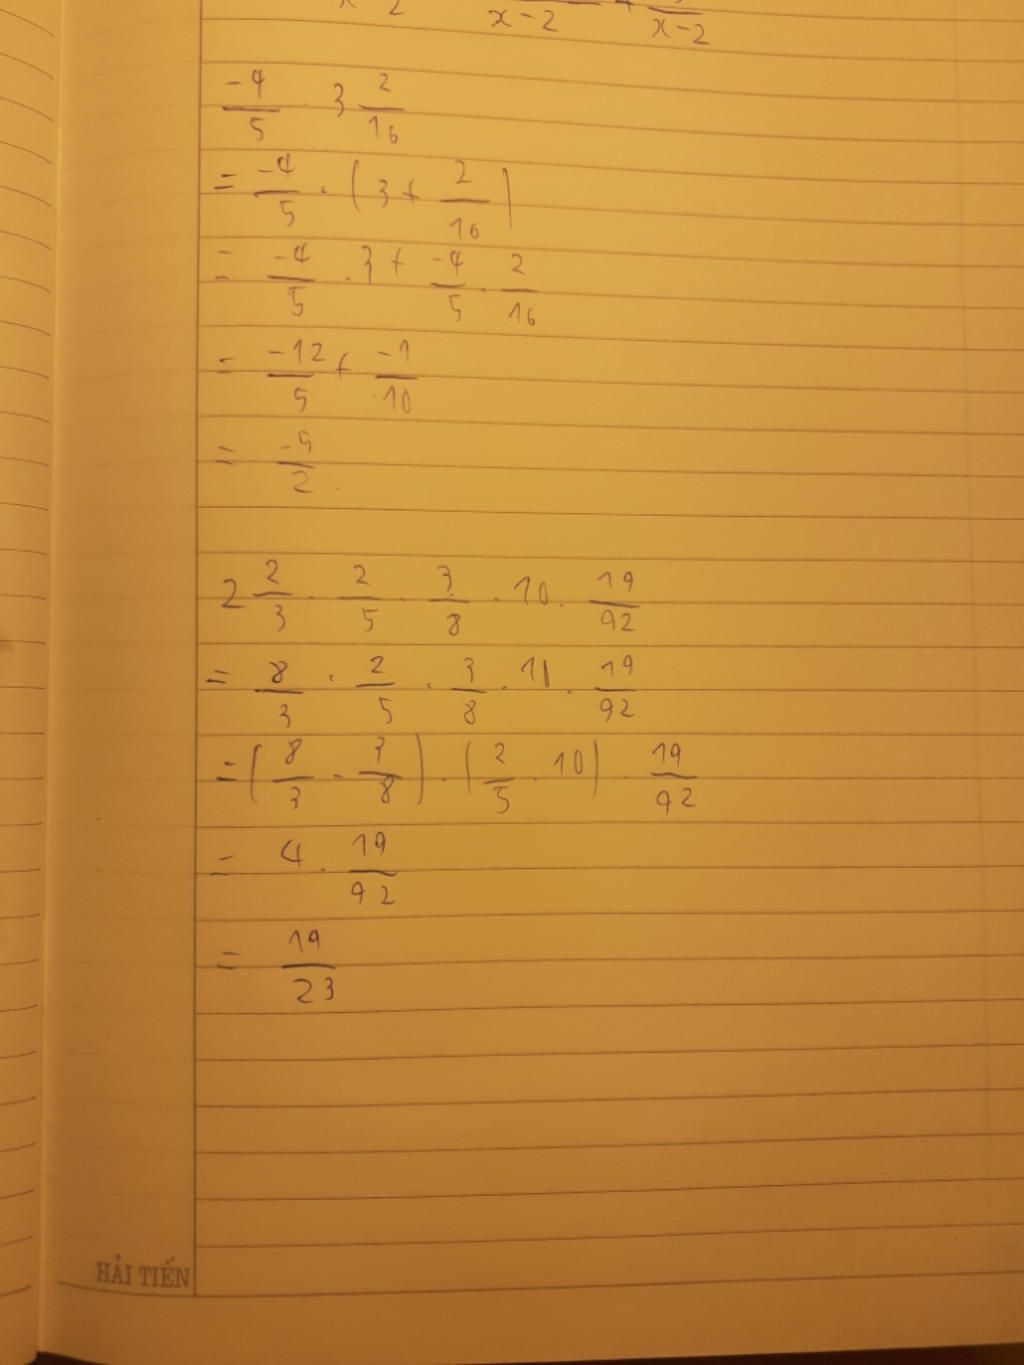 x-2 x-2
-4/5 . 3 2/16
= -4/5 . (3 + 2/16)
= -4/5 . 3 + -4/5 . 2/16
= -12/5 + -1/10
= -5/2.
2 2/3 . 2/5 . 3/8 . 10 . 19/92
= 8/3 . 2/5 . 3/8 . 10 . 19/92
= (8/3 . 3/8) . (2/5 . 10) . 19/92
= 4 . 19/92
= 19/23
HẢI TIẾN